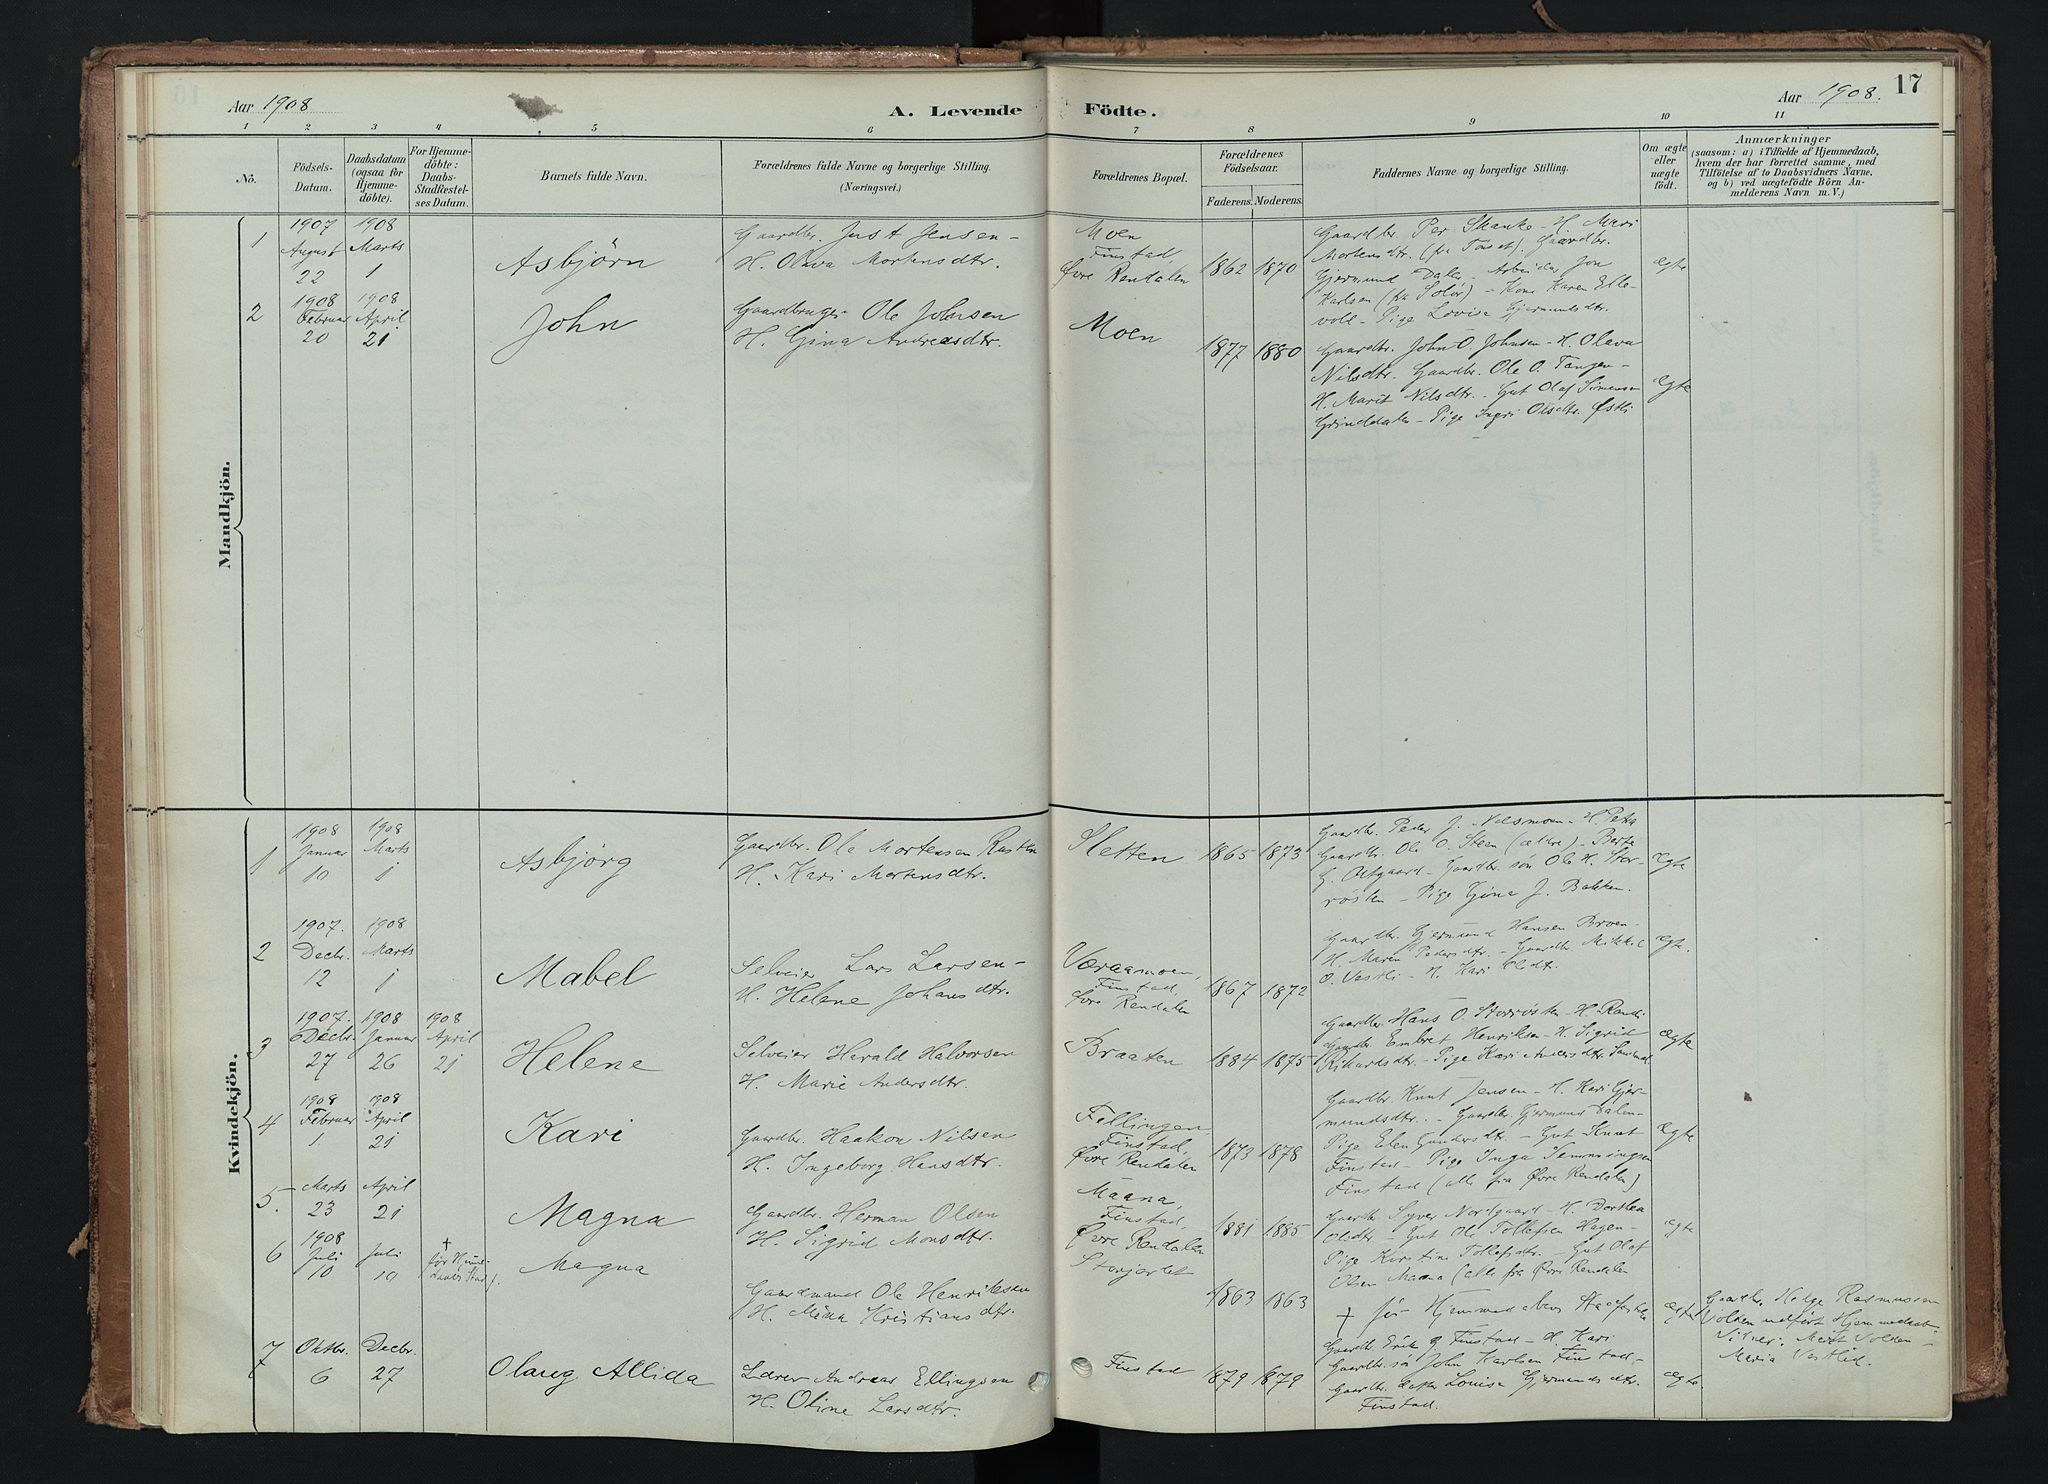 Aar 1908
A. Levende
Födte.
Aar 1908.
17
1 2 3 4 5 6 7 8 9 10 11
No.
Födsels-
Datum.
Daabsdatum
(ogsaa for
Hjemme-
döbte).
For Hjemme-
döbte:
Daabs-
Stadfæstel-
ses Datum.
Barnets fulde Navn.
Forældrenes fulde Navne og borgerlige Stilling.
(Næringsvei.)
Forældrenes Bopæl.
Forældrenes
Födselsaar.
Faderens. Moderens.
Faddernes Navne og borgerlige Stilling.
Om ægte
eller
uægte
födt.
Anmærkninger
(saasom: a) i Tilfælde af Hjemmedaab,
hvem der har forrettet samme, med
Tilföielse af to Daabsvidners Navne,
og b) ved uægtefödte Börn An-
melderens Navn m. V.)
Mandkjön.
1
1907
August
22
1908
Marts
1
Asbjörn
Gaardbr. Just Jensen -
H. Olava Mortensdtr.
Moen
Finstad,
Øvre Rendalen
1862 1870
Gaardbr. Per Skanke - H. Mari
Mortensdtr. (fra Tönset). Gaardbr.
Gjermund Dalen - Arbeider Jon
Karlsen (fra Solör) - Kone Karen Elle-
voll - Pige Lovise Gjermundsdtr.
ægte
2
1908
Februar
20
1908
April
21
John
Gaardbruger Ole Johnsen
H. Gina Andreasdtr.
Moen
1877 1880
Gaardbr. John O. Johnsen - H. Olava
Nilsdtr. Gaardbr. Ole O. Tangen -
H. Marit Nilsdtr. - Gut Olaf Simensen
Grinddalen - Pige Ingri Olsdtr. Østli
ægte
Kvindekjön.
1
1908
Januar
10
1908
Marts
1
Asbjörg
Gaardbr. Ole Mortensen Rusten
H. Kari Mortensdtr.
Sletten
1865 1873
Gaardbr. Peder J. Nilsmoen - H. Peta
Gaardbr. Ole O. Steen (ældre) - Berta
G. Østgaard - Gaardbr. sön Ole H. Stor-
rösten - Pige Gina J. Bakken.
ægte
2
1907.
Decbr.
12
1908
Marts
1
Mabel
Selveier Lars Larsen -
H. Helene Johansdtr.
Væraamoen,
Finstad,
Øvre Rendalen
1867 1872
Gaardbr. Gjermund Hansen Broen -
H. Maren Pedersdtr. - Gaardbr. Mikkel
O. Vestli - H. Kari
ægte.
3
1907.
Decbr.
27
1908
Januar
26
1908
April
21
Helene
Selveier Harald Halvorsen
H. Marie Andersdtr.
Braaten
1884 1875
Gaardbr. Hans O. Storrösten - H. Randi
Gaardbr. Embret Henriksen - H. Sigrid
Rikardsdtr. - Pige Kari Andersdtr.
ægte
4
1908
Februar
1.
1908
April
21
Kari
Gaardbr. Haakon Nilsen
H. Ingeborg Hansdtr.
Fellingen,
Finstad,
Øvre Rendalen
1873 1878
Gaardbr. Knut Jensen - H. Kari Gjer-
mundsdtr. - Gaardbr. Gjermund Dalen -
Pige Elen Gundersdtr. - Gut Knut
Finstad - Pige Inga Semmingsen
Finstad (alle fra Øvre Rendalen)
ægte
5.
Marts
23
April
21
Magna
Gaardbr. Herman Olsen
H. Sigrid Monsdtr.
Maana,
Finstad,
Øvre Rendalen
1881 1885
Gaardbr. Syver Nordgaard - H. Dorthea
Olsdtr - Gut Ole Tollefsen Hagen -
Pige Kirstine Tollefsdtr. - Gut Olaf
Olsen Maana (alle fra Øvre Rendalen
ægte
6
1908
Juli
10
Juli
10
†
för Hjemme-
daabs Stadf.
Magna
Gaardmand Ole Henriksen
H. Mina Kristiansdtr.
Storjordet
1863 1863
† för Hjemmedaabens Stadfæstelse
ægte
Gaardbr. Helge Rasmussen
Volden udfört Hjemmedaab
Vidner: Marit Volden -
Maria Vestlid.
7
Oktbr.
6
Decbr.
27
Olaug Allida
Lærer Andreas Ellingsen
H. Oline Larsdtr.
Finstad
1879 1879
Gaardbr. Erik G. Finstad - H. Kari
Gaardbr. sön John Karlsen Finstad -
Gaardbr. datter Louise Gjermundsdtr.
Finstad.
ægte